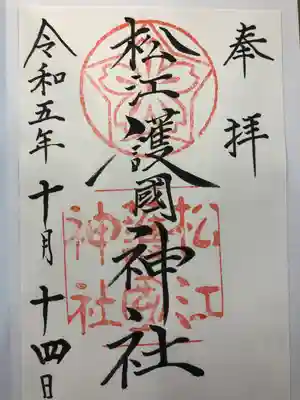 奉拝
松江護國神社
松江
護國
神社
令和五年十月十四日